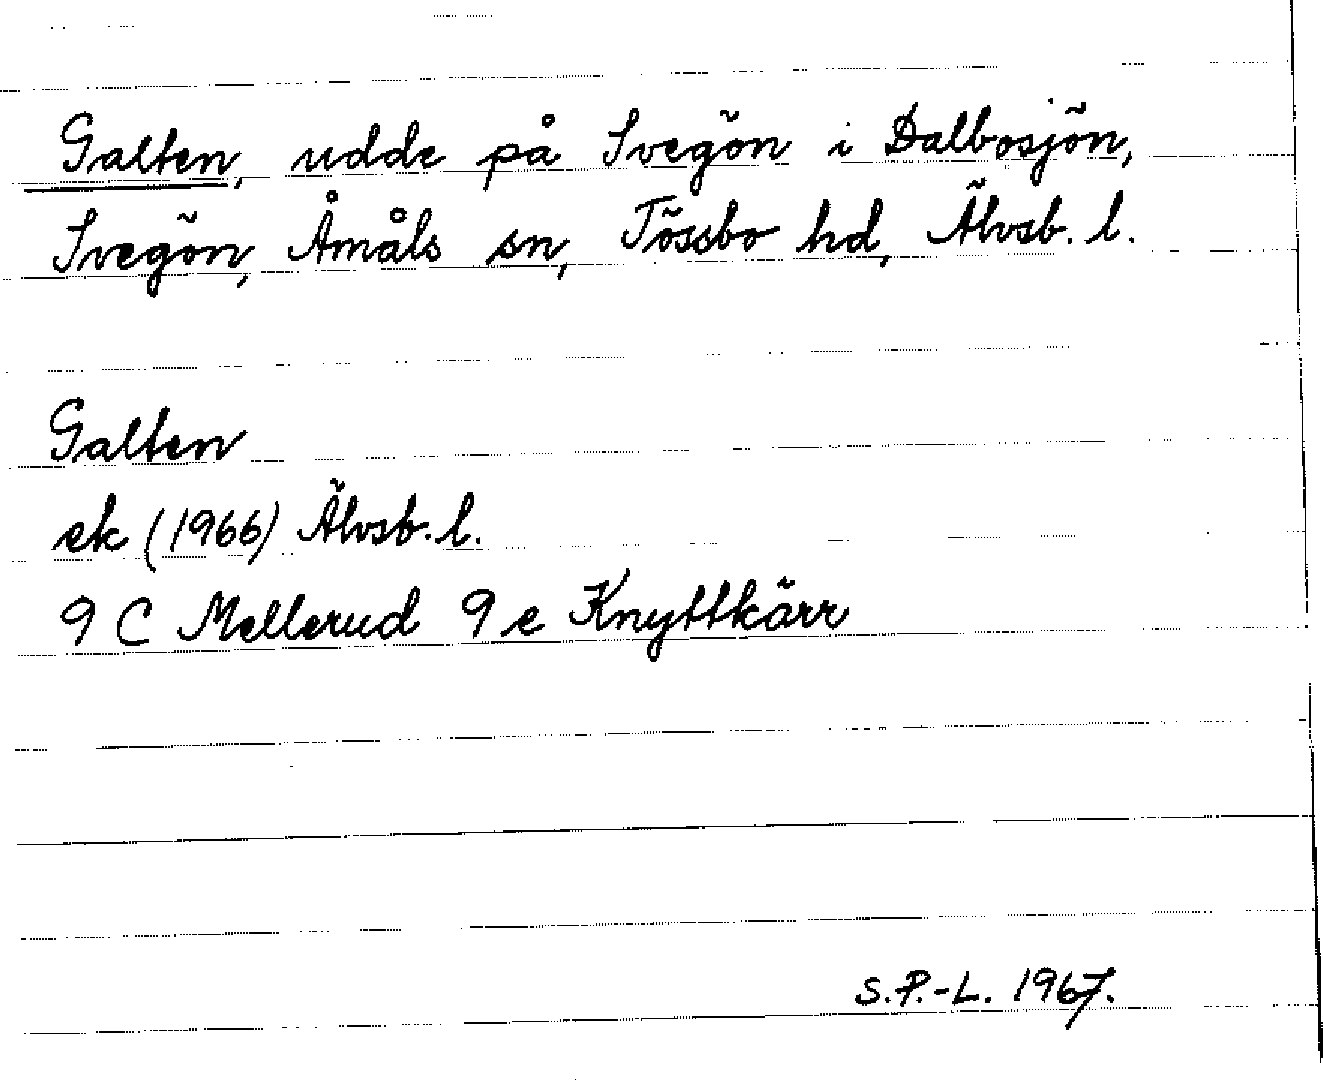 Galten, udde på Svegön i Dalbosjön,
Svegön, Åmåls sn, Tössbo hd, Älvsb. l.
Galten
ek (1966) Älvsb. l.
9 C Mellerud 9 e Knyttkärr
S.P.-L. 1967.